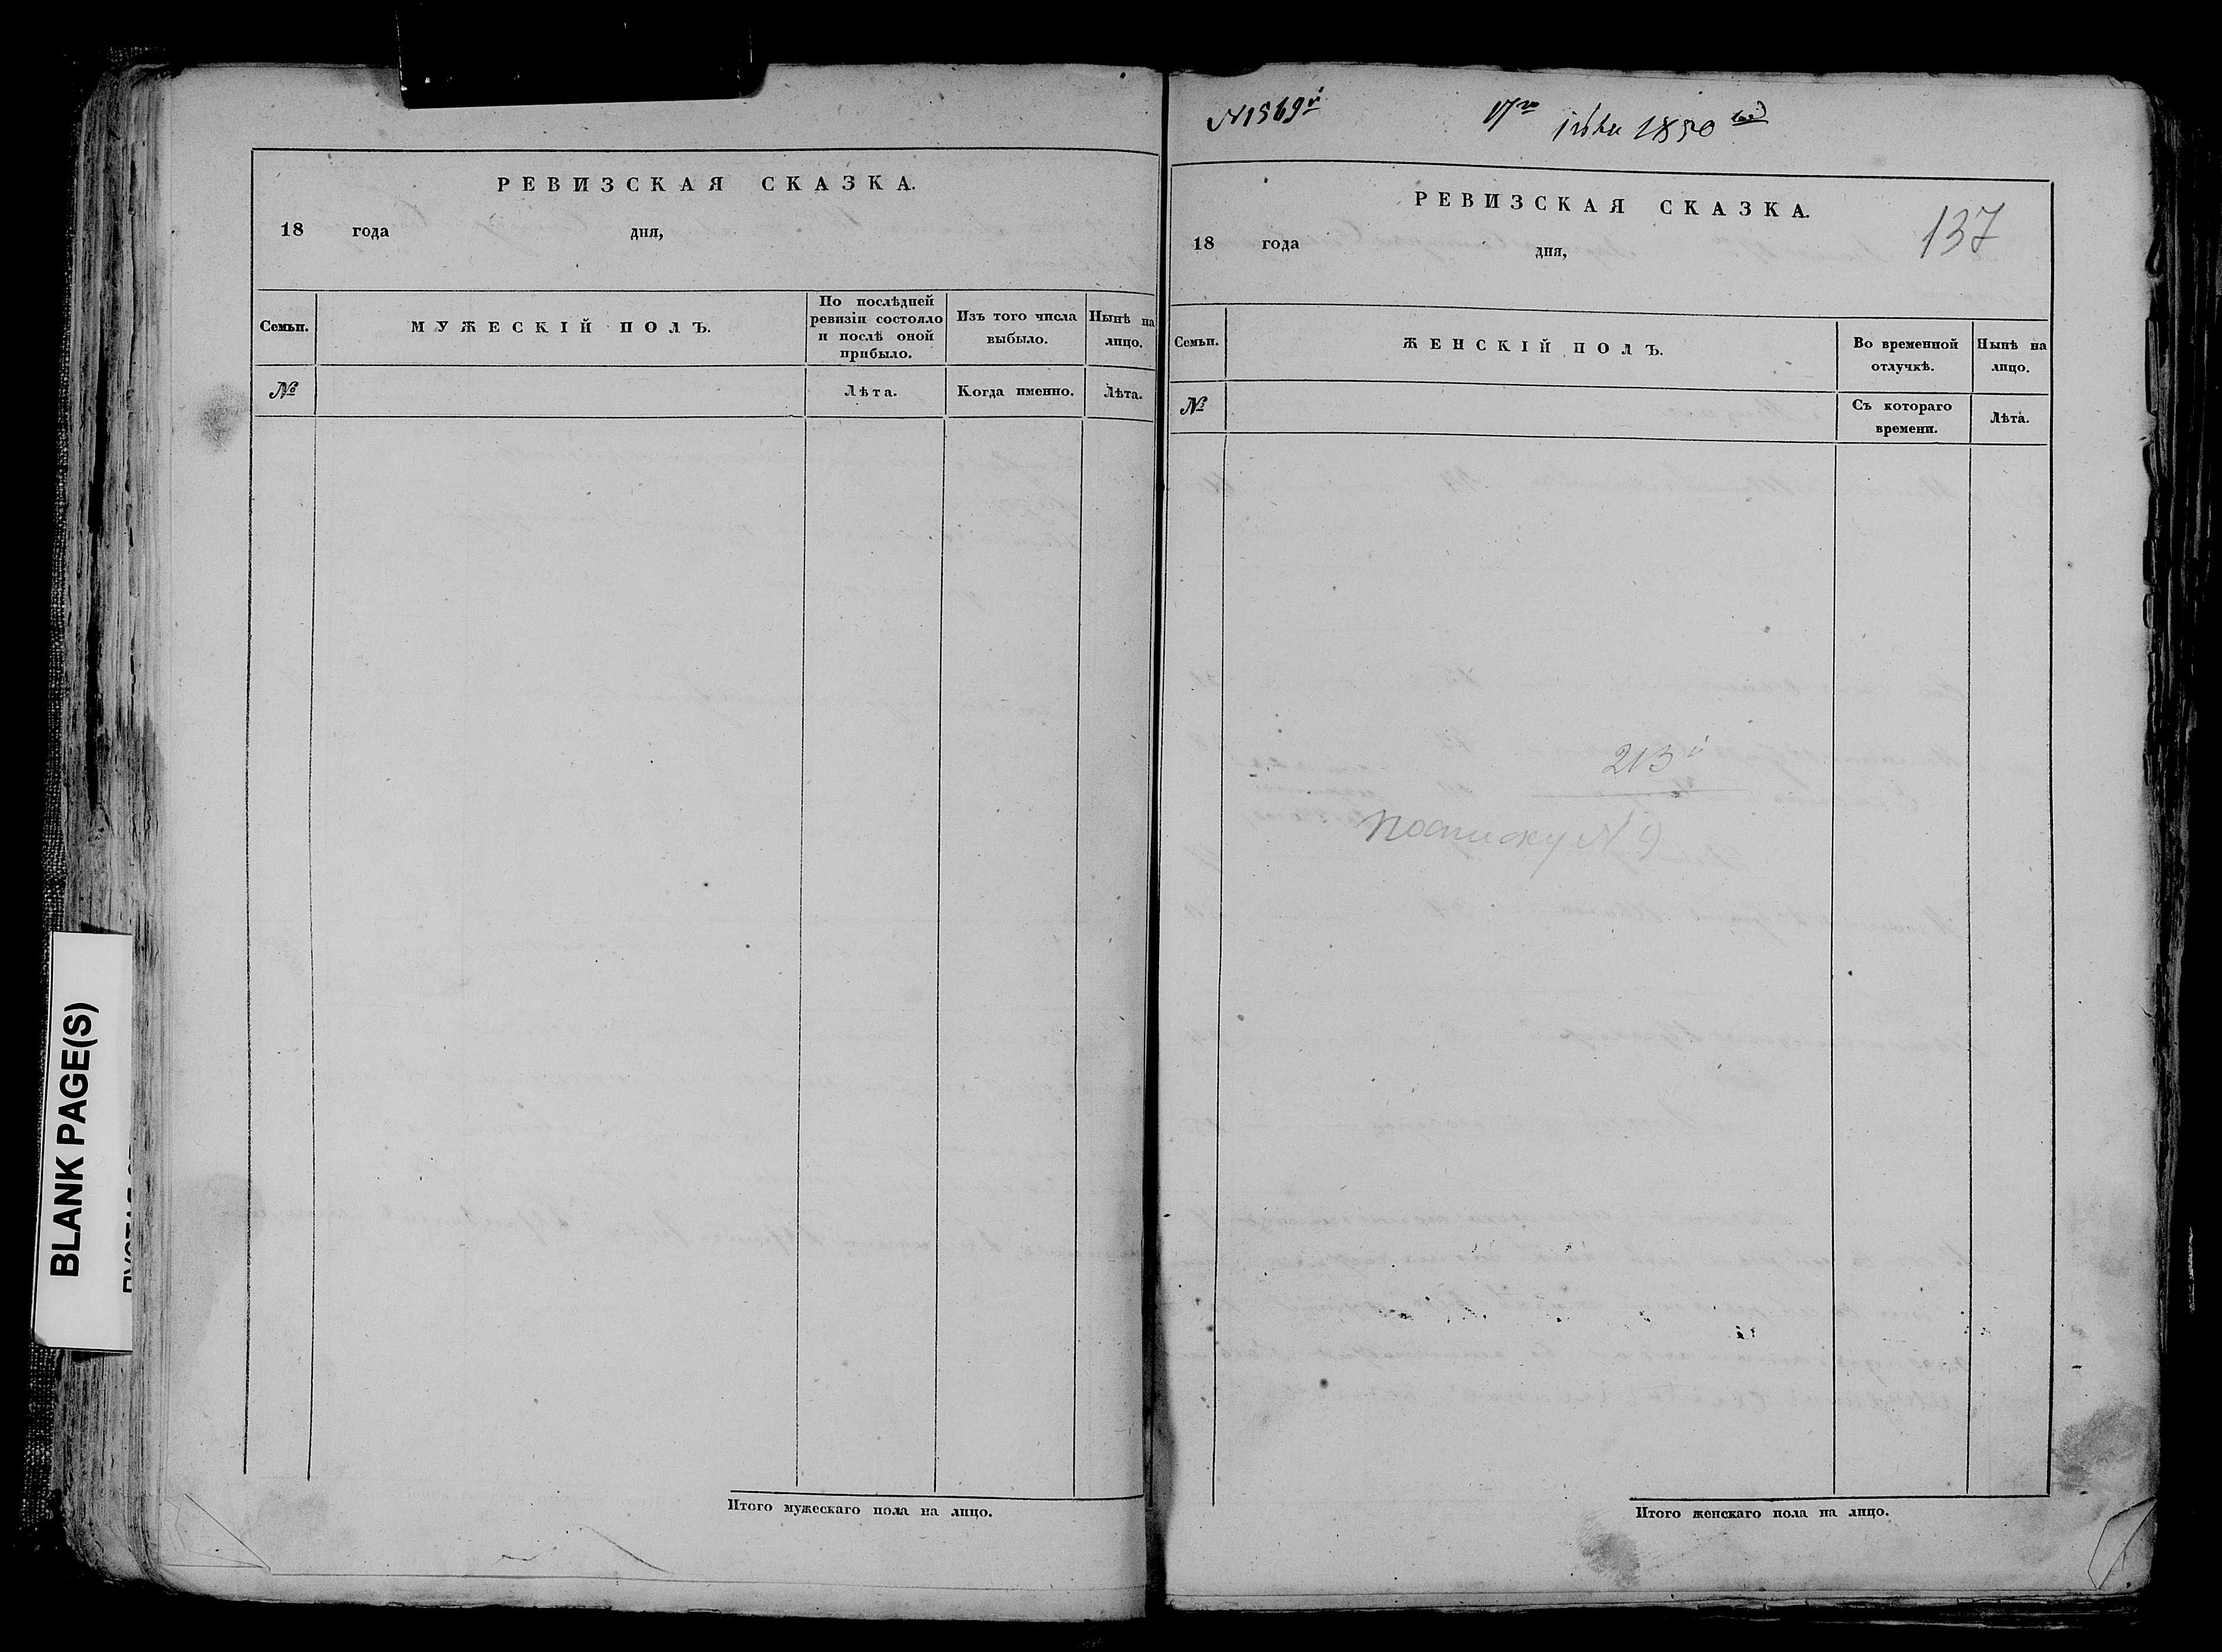 РЕВИЗСКАЯ СКАЗКА.
18 года дня,
Семьи.
МУЖЕСКІЙ ПОЛЪ.
По послѣдней
ревизіи состояло
и послѣ оной
прибыло.
Изъ того числа
выбыло.
Нынѣ на
лицо.
№
Лѣта.
Когда именно.
Лѣта.
Итого мужескаго пола на лицо.
BLANK PAGE(S)
N1569й
17го
1850
РЕВИЗСКАЯ СКАЗКА.
137
18 года дня,
Семьи.
ЖЕНСКІЙ ПОЛЪ.
Во временной
отлучкѣ.
Нынѣ на
лицо.
№
Съ котораго
времени.
Лѣта.
213й
По списку N 9
Итого женскаго пола на лицо.